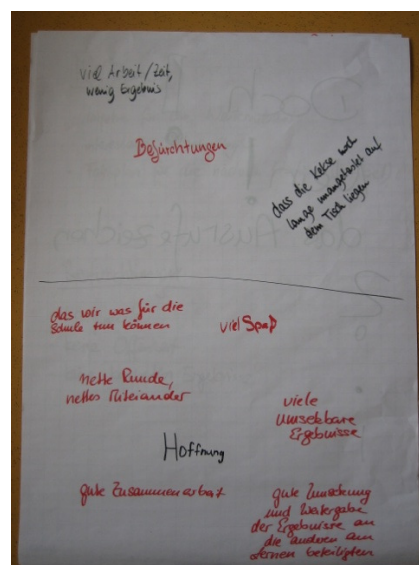 viel Arbeit/Zeit,
wenig Ergebnis
Befürchtungen
dass die Kekse noch
lange unangetastet auf
dem Tisch liegen
das wir was für die
Schule tun können
viel Spaß
nette Runde,
nettes Miteiander
viele
umsetzbare
Ergebnisse
Hoffnung
gute Zusammenarbeit
gute Umsetzung
und Weitergabe
der Ergebnisse an
die anderen am
Lernen beteiligten